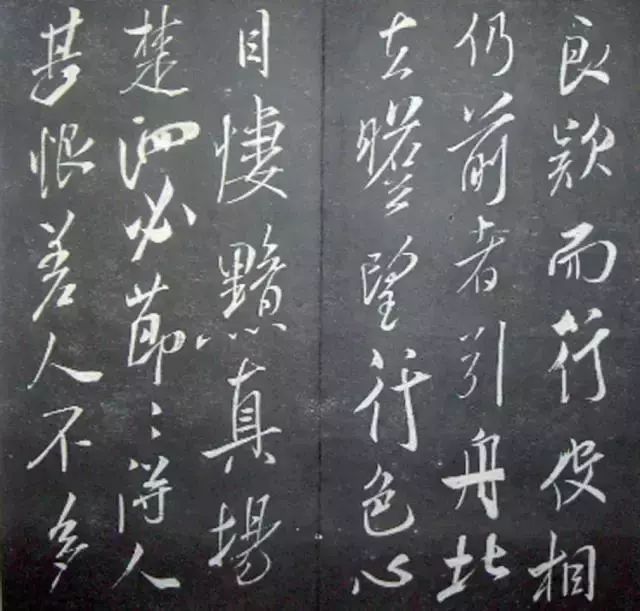 良款而行役相
仍前者引舟北
去瞻望行色心
目悽黯真揚
楚泗必節〻得人
甚恨差人不多